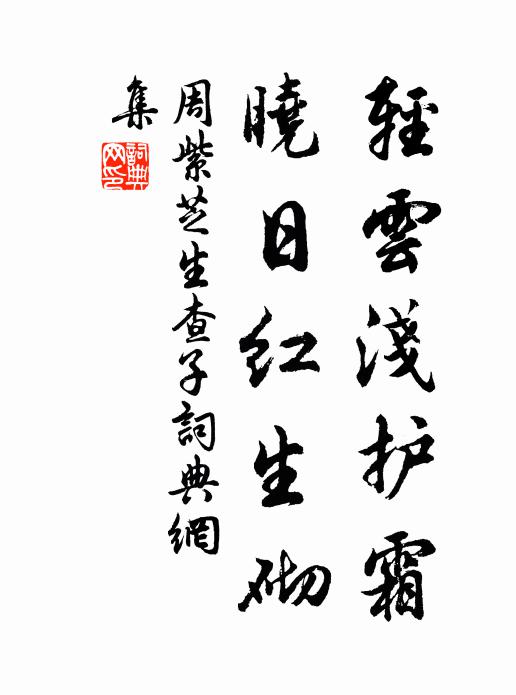 輕雲淺护霜
曉日红生砌
周紫芝生查子詞典網
集
詞典
网印